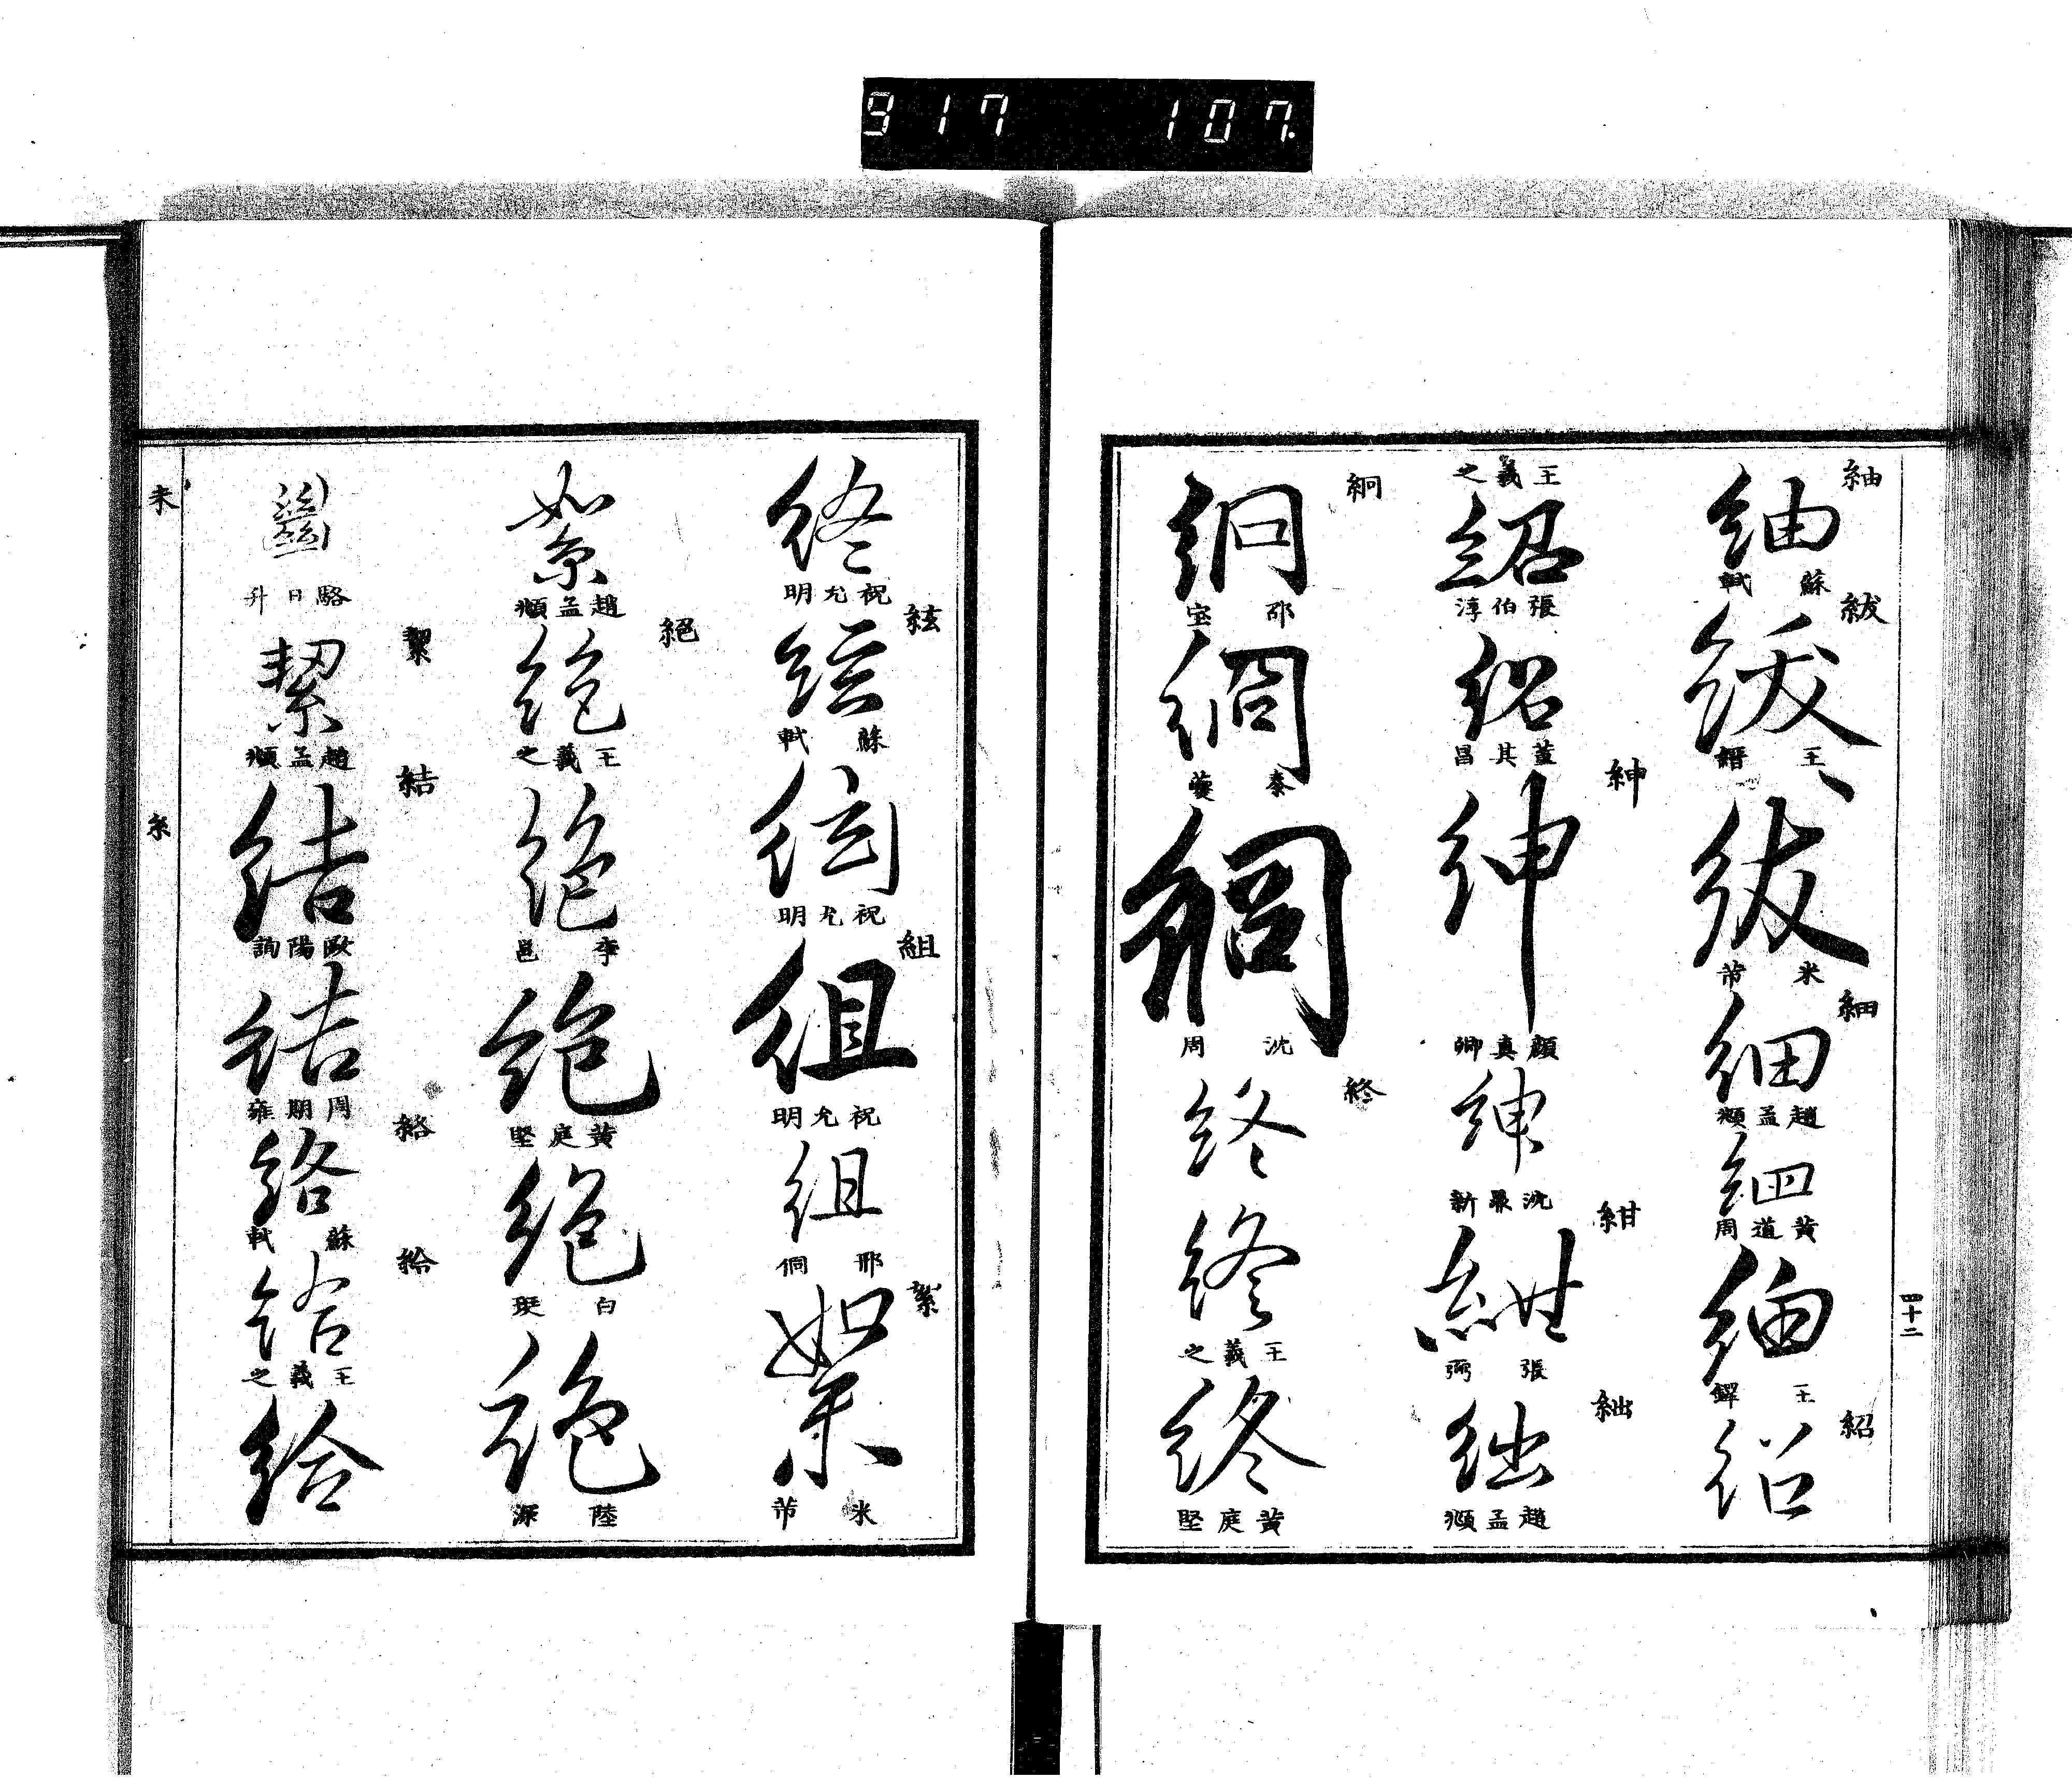 917 107.
紬
紬
蘇軾
紱
紱
王縉
紱
米芾
細
細
趙孟頫
細
黃道周
細
王鐸
紹
紹
四十二
王羲之
紹
張伯淳
紹
董其昌
紳
紳
顏真卿
紳
沈鼎新
紺
紺
張弼
絀
絀
趙孟頫
絅
絅
邵宝
絅
秦夔
絅
沈周
終
終
終
王羲之
終
黃庭堅
終
祝允明
絃
絃
蘇軾
絃
祝允明
組
組
祝允明
組
邢侗
絮
絮
米芾
絮
趙孟頫
絕
絕
王羲之
絕
李邕
絕
黃庭堅
絕
白珽
絕
陸深
駱日升
絜
絜
趙孟頫
結
結
歐陽詢
結
周期雍
絡
絡
蘇軾
給
給
王羲之
給
未
糸